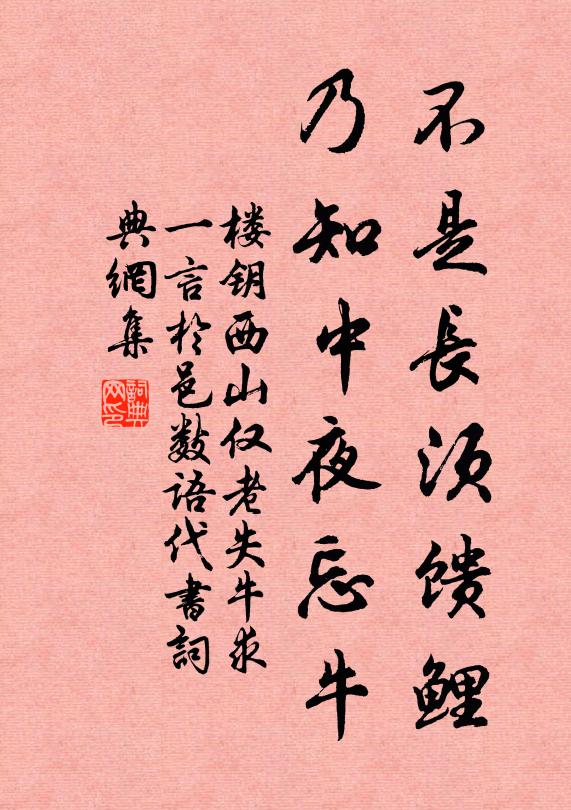 不是長须馈鲤
乃知中夜忘牛
楼钥西山仅老失牛求
一言於邑数语代書詞
典網集
詞典网印